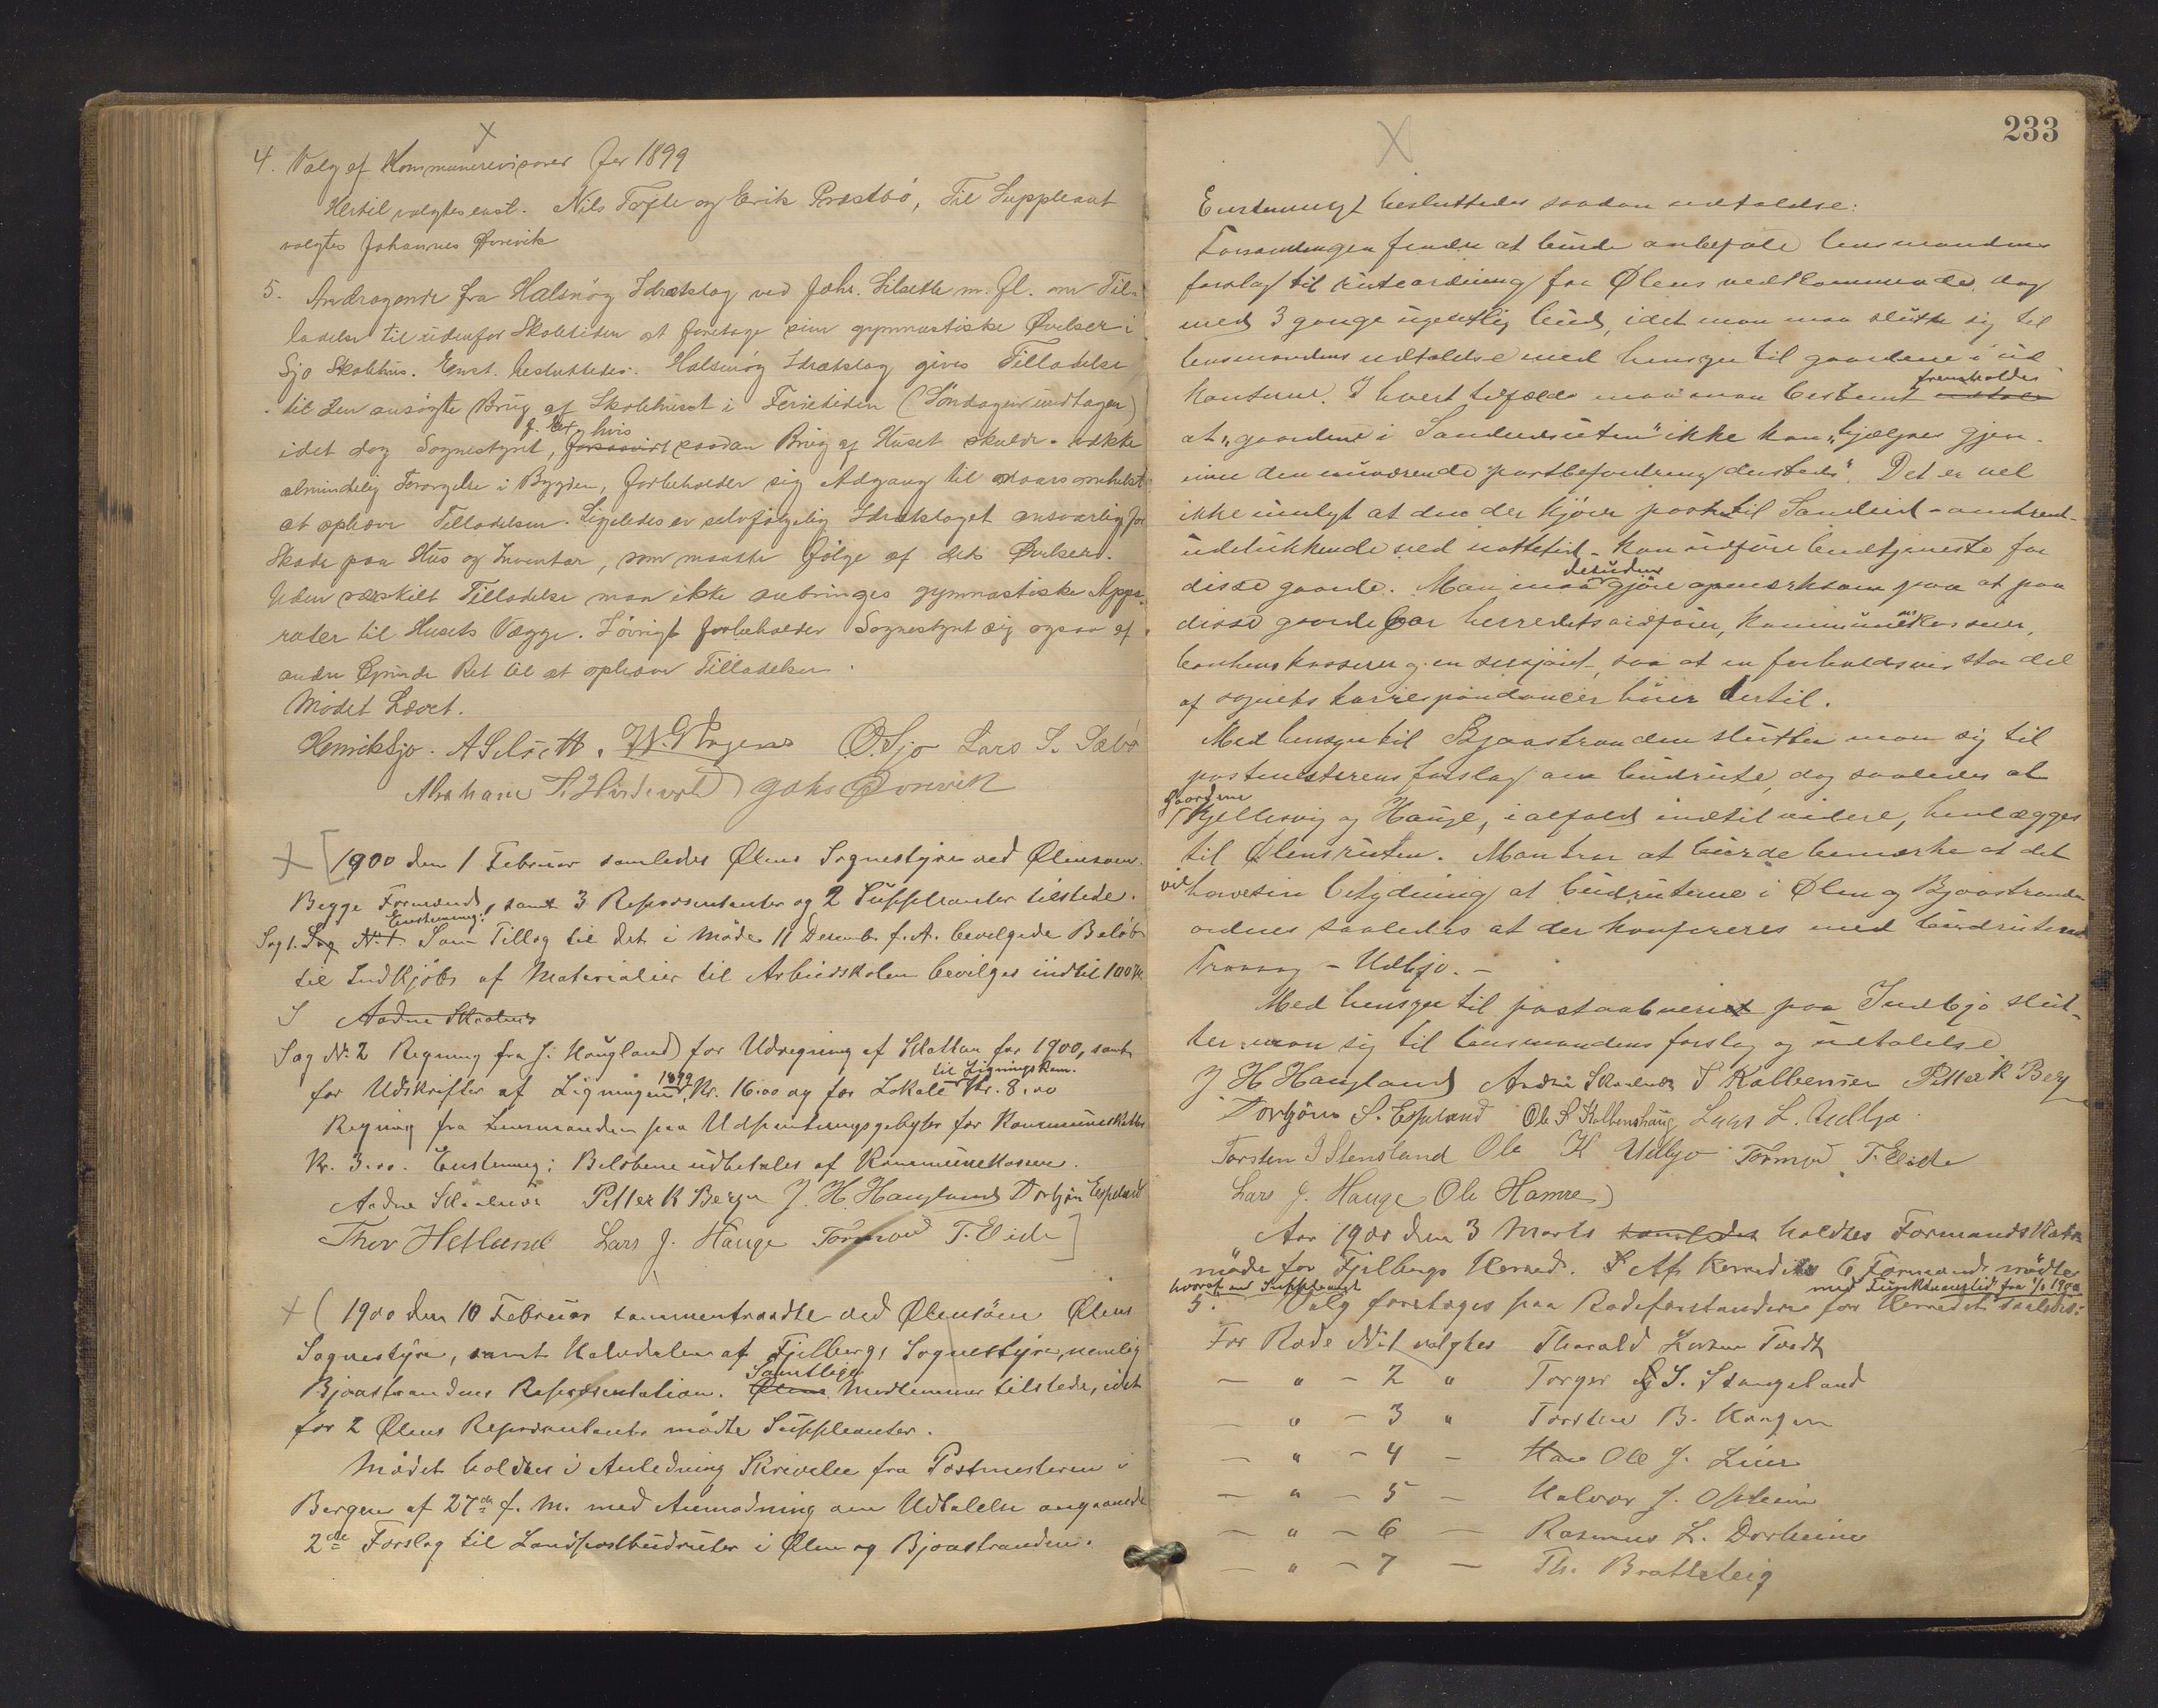 4. Valg af Kommunerevisorer for 1899
Hertil valgtes enst. Nils Tofte og Erik Præstbö, Til Suppleant
valgtes Johannes Øvrevik
5. Andragende fra Halsnög Idrætslag ved Johs. Silseth m. fl. om Til-
ladelse til udenfor Skoletiden at foretage sine gymnastiske Øvelser i
Sjo Skolehus. Enst. besluttedes: Halsnög Idrætslag gives Tilladelse
til den ansögte Brug af Skolehuset i Ferietiden (Söndagen undtagen)
idet dog Sognestyret, hvis saadan Brug af Huset skulde vække
almindelig Forargelse i Bygden, forbeholder sig Adgang til naarsomhelst
at ophæve Tilladelsen. Ligeledes er selvfölgelig Idrætslaget ansvarlig for
Skade paa Hus og Inventar, som maatte fölge af dets Øvelser.
Uden særskilt Tilladelse maa ikke anbringes gymnastiske Appa-
rater til Husets Vægge. Iövrigt forbeholder Sognestyret sig ogsaa af
andre Grunde Ret til at ophæve Tilladelsen.
Mödet hævet.
Henrik Sjo. A Silseth. O. Sjo Lars S. Sæbö
Abraham Johs Øvrevik
1900 den 1 Februar samledes Ølens Sognestyre ved Ølensøen.
Begge Formænd, samt 3 Repræsentanter og 2 Suppleanter tilstede.
Enstemmig:
Sag 1. Sag No 1. Som Tillæg til det i Möde 11 Decembr f. A. bevilgede Belöb
til Indkjöb af Materialier til Arbeidskolen bevilges indtil 100 Kr
S Aadne
Sag No 2 Regning fra J. Haugland for Udregning af Skatten for 1900, samt
til Ligningskom.
for Udskrifter af Ligningen 1899, Kr. 16.00 og for Lokale Kr. 8.00
Regning fra Lensmanden paa Udpantningsgebyhr for Kommuneskatter
Kr. 3.00. Enstemmig: Belöbene udbetales af Kommunekassen.
Aadne Petter K Berge J. H. Haugland Torbjörn Espeland
Thor Hetland Lars J. Hauge Tormod T. Eide
1900 den 10 Februar sammentraadte ved Ølensöen Ølens
Sognestyre, samt Halvdelen af Fjelbergs Sognestyre, nemlig
Samtlige
Bjoastrandens Repræsentation. Ølens Medlemmer tilstede, idet
for 2 Ølens Repræsentanter mödte Suppleanter.
Mödet holdtes i Anledning Skrivelse fra Postmesteren i
Bergen af 27de f. M. med Anmodning om Udtalelse angaaende
2de Forslag til Landpostbudruter i Ølen og Bjoastranden.
233
Enstemmigt besluttedes saadan udtalelse:
Forsamlingen finder at burde anbefale lensmandens
forslag til ruteordning for Ølens vedkommende dog
med 3 gange ugentlig bud, idet man maa slutte sig til
lensmandens udtalelse med hensyn til gaardene i ud
fremholdes
kanterne. I hvert tilfælde maa man bestemt
at "gaardene i Sandeidsruten" ikke kan "hjælpes gjen-
nem den nuværende postbefordring dersteds". Det er vel
ikke muligt at den der kjörer post til Sandeid - omtrent
udelukkende ved nattetid - kan udföre budtjeneste for
desuden
disse gaarde. Man maa gjöre opmærksom paa at paa
disse gaarde bor herredets ordförer, kommunekasserer,
bankens kasserer og en sersjant, saa at en forholdsvis stor del
af sognets korrespondancer hörer dertil.
Med hensyn til Bjoastranden slutter man sig til
postmesterens forslag om budrute, dog saaledes at
gaardene
Kjellesvig og Hauge, i alfald indtil videre, henlægges
til Ølensruten. Man tror at burde bemærke at det
vil have sin betydning at budruterne i Ølen og Bjoastranden
ordnes saaledes at der konfereres med budruterne
- Udbjo. -
Med hensyn til postaabneriet paa Indbjo slut-
ter man sig til lensmandens forslag og udtalelse
J H Haugland Petter K Berge
Torbjörn S. Espeland Ole S Lars L. Indbjo
Torsten J Stensland Ole K Udbjo Tormod T. Eide
Lars J. Hauge Ole Hamre
Aar 1900 den 3 Marts samledes holdtes Formandskabs
möde for Fjelbergs Herred. Af Herredets 6 Formænd mödte
hvoraf en Suppleant
med Funktionstid fra 1/1 1900
5. Valg foretages paa Rodeforstandere for Herredet saaledes:
For Rode No 1 valgtes Tharald
— " — 2 " Torger J. Stangeland
— " — 3 " Torsten B.
— " — 4 — Ole J. Lier
— " — 5 — Halvor J.
— " — 6 — Rasmus L. Dorheim
— " — 7 — Th. Bratteteig